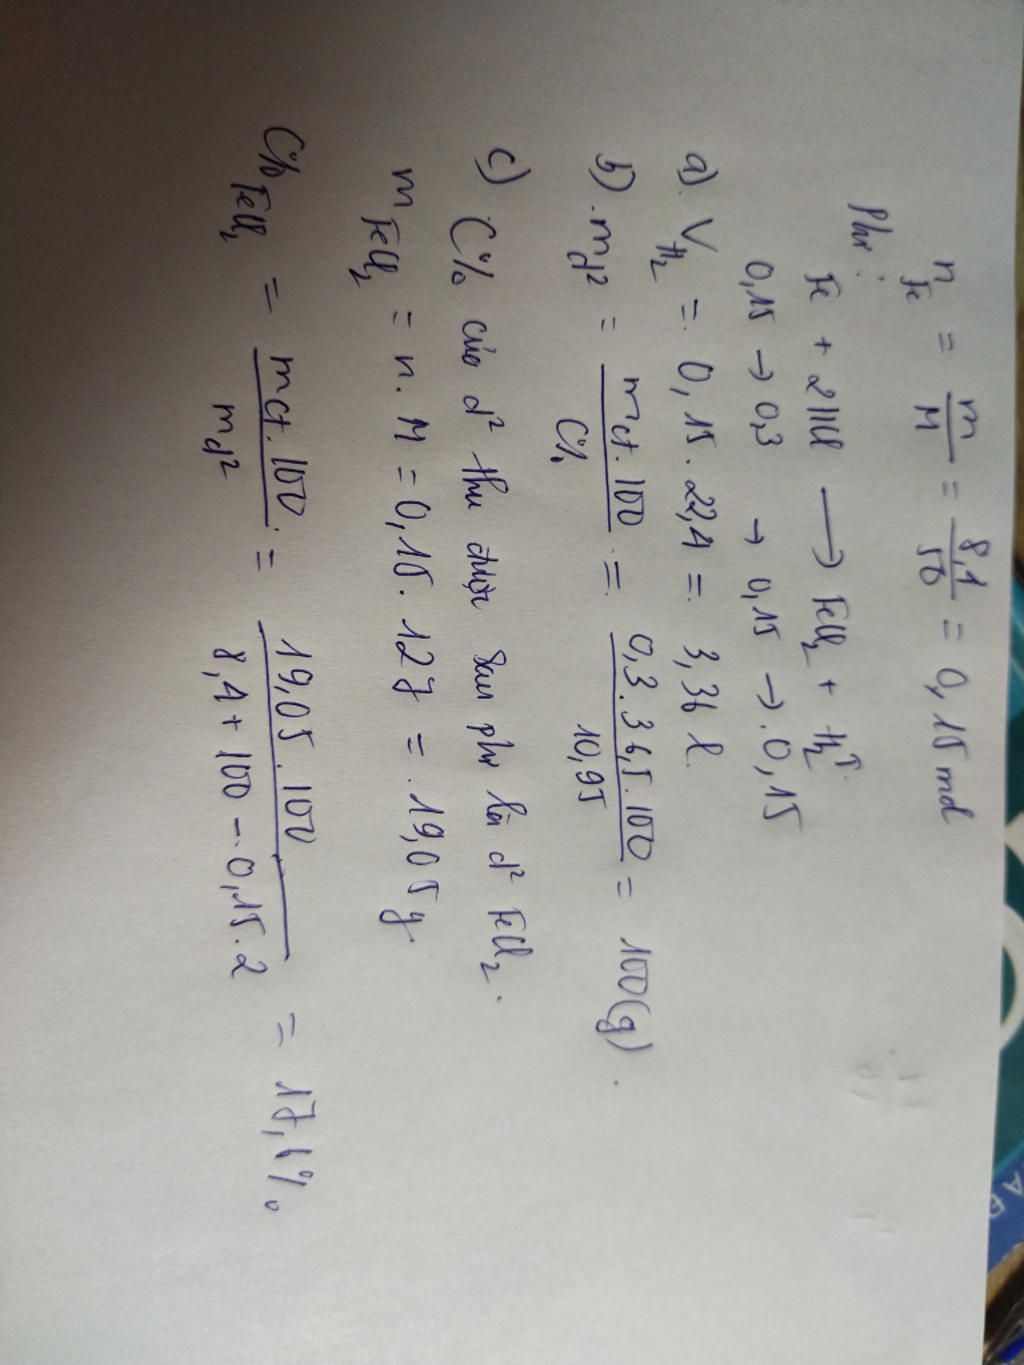 n_Fe = m/M = 8,4/56 = 0,15 mol
Ptpư:
Fe + 2HCl ⟶ FeCl₂ + H₂↑
0,15 → 0,3 → 0,15 → 0,15
a) V_H₂ = 0,15 . 22,4 = 3,36 l
b) m_d² = mct.100/C% = 0,3.36,5.100/10,95 = 100(g).
c) C% của d² thu được sau pư là d² FeCl₂.
m_FeCl₂ = n.M = 0,15.127 = 19,05 g.
C%_FeCl₂ = mct.100/m_d² = 19,05.100/8,4+100-0,15.2 = 17,6%